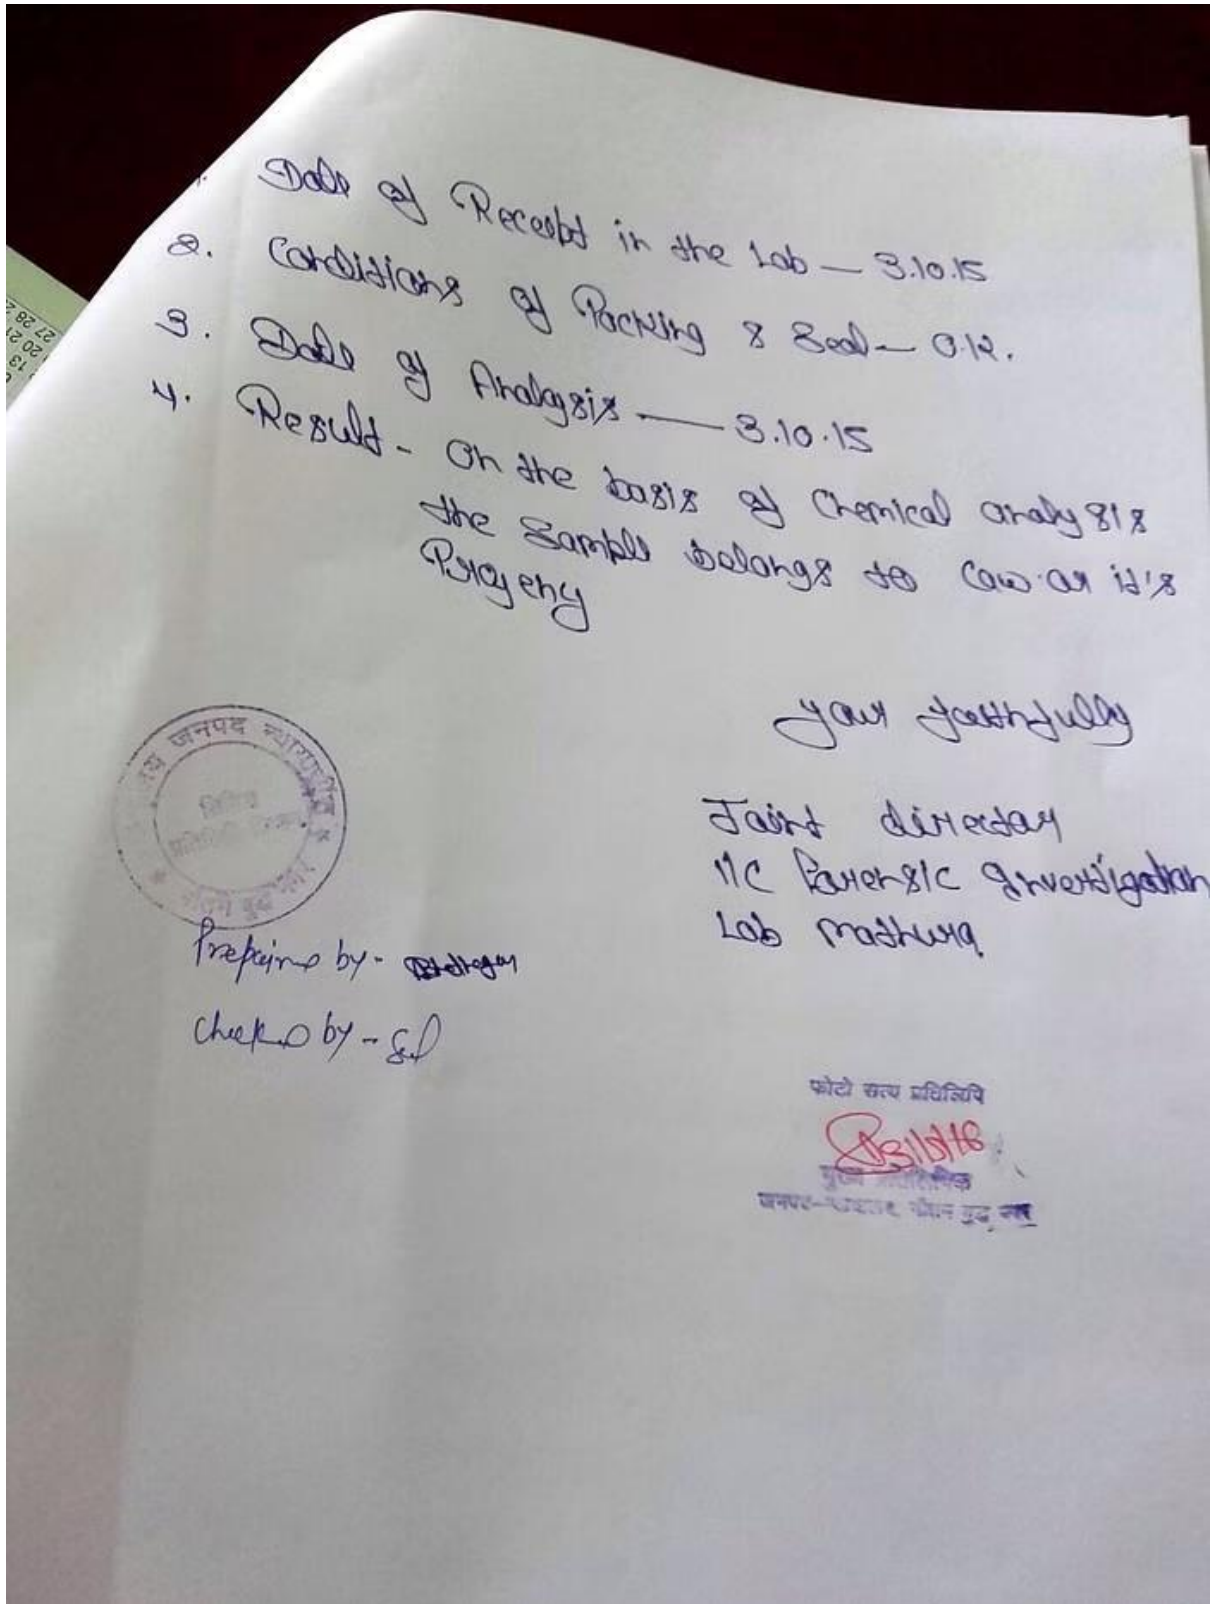 1. Date of Receipt in the Lab — 3.10.15
2. Conditions of Packing & Seal — O.K.
3. Date of Analysis — 3.10.15
4. Result - On the basis of Chemical analysis
the Sample belongs to Cow or it's
Progeny
your faithfully
Joint director
I/C Forensic Investigation
Lab Mathura
जनपद न्यायाधीश
गौतम बुद्ध नगर
Prepaired by -
Checked by - Sd
फोटो सत्य प्रतिलिपि
मुख्य प्रतिलिपिक
गौतम बुद्ध नगर